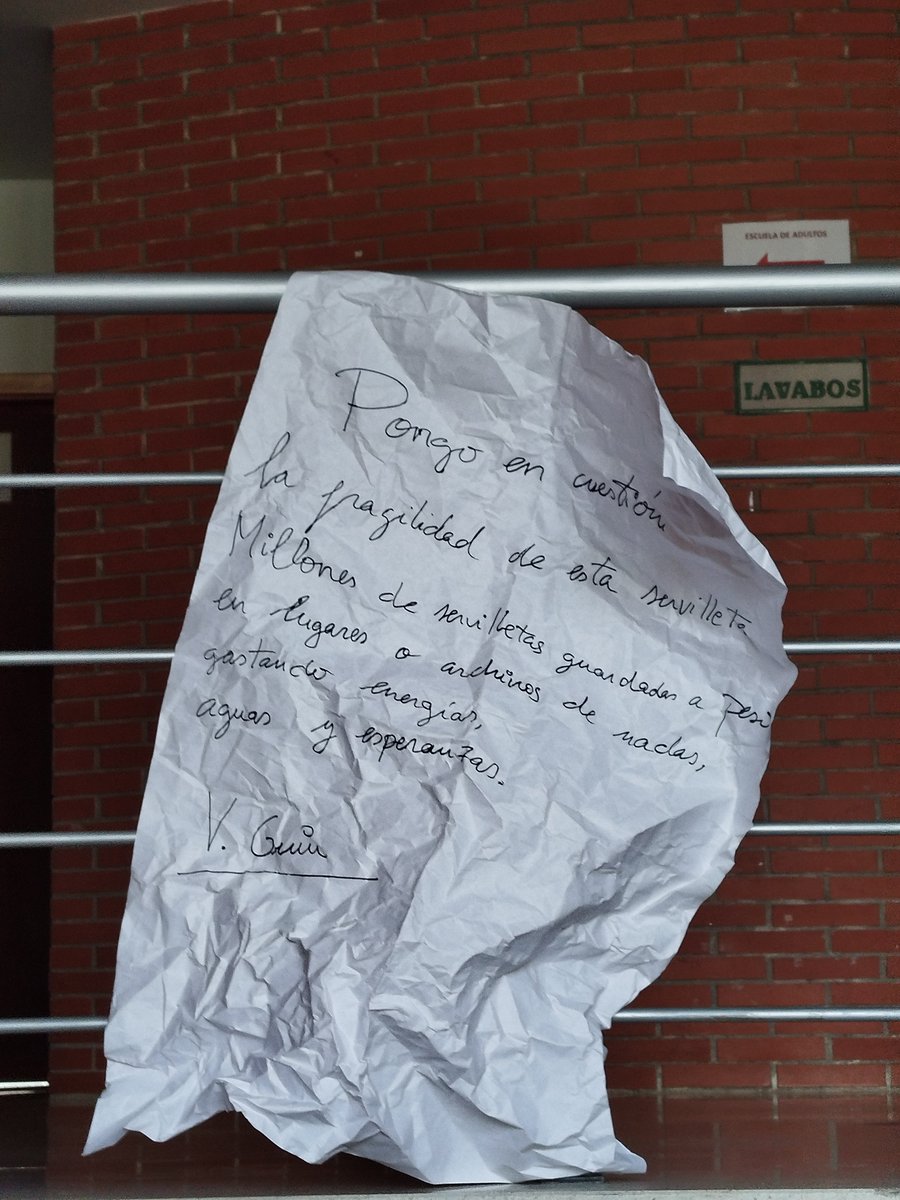 ESCUELA DE ADULTOS
LAVABOS
Pongo en cuestión
la fragilidad de esta servilleta
Millones de servilletas guardadas a
en lugares o archivos de nadas,
gastando energías,
aguas y esperanzas.
V.